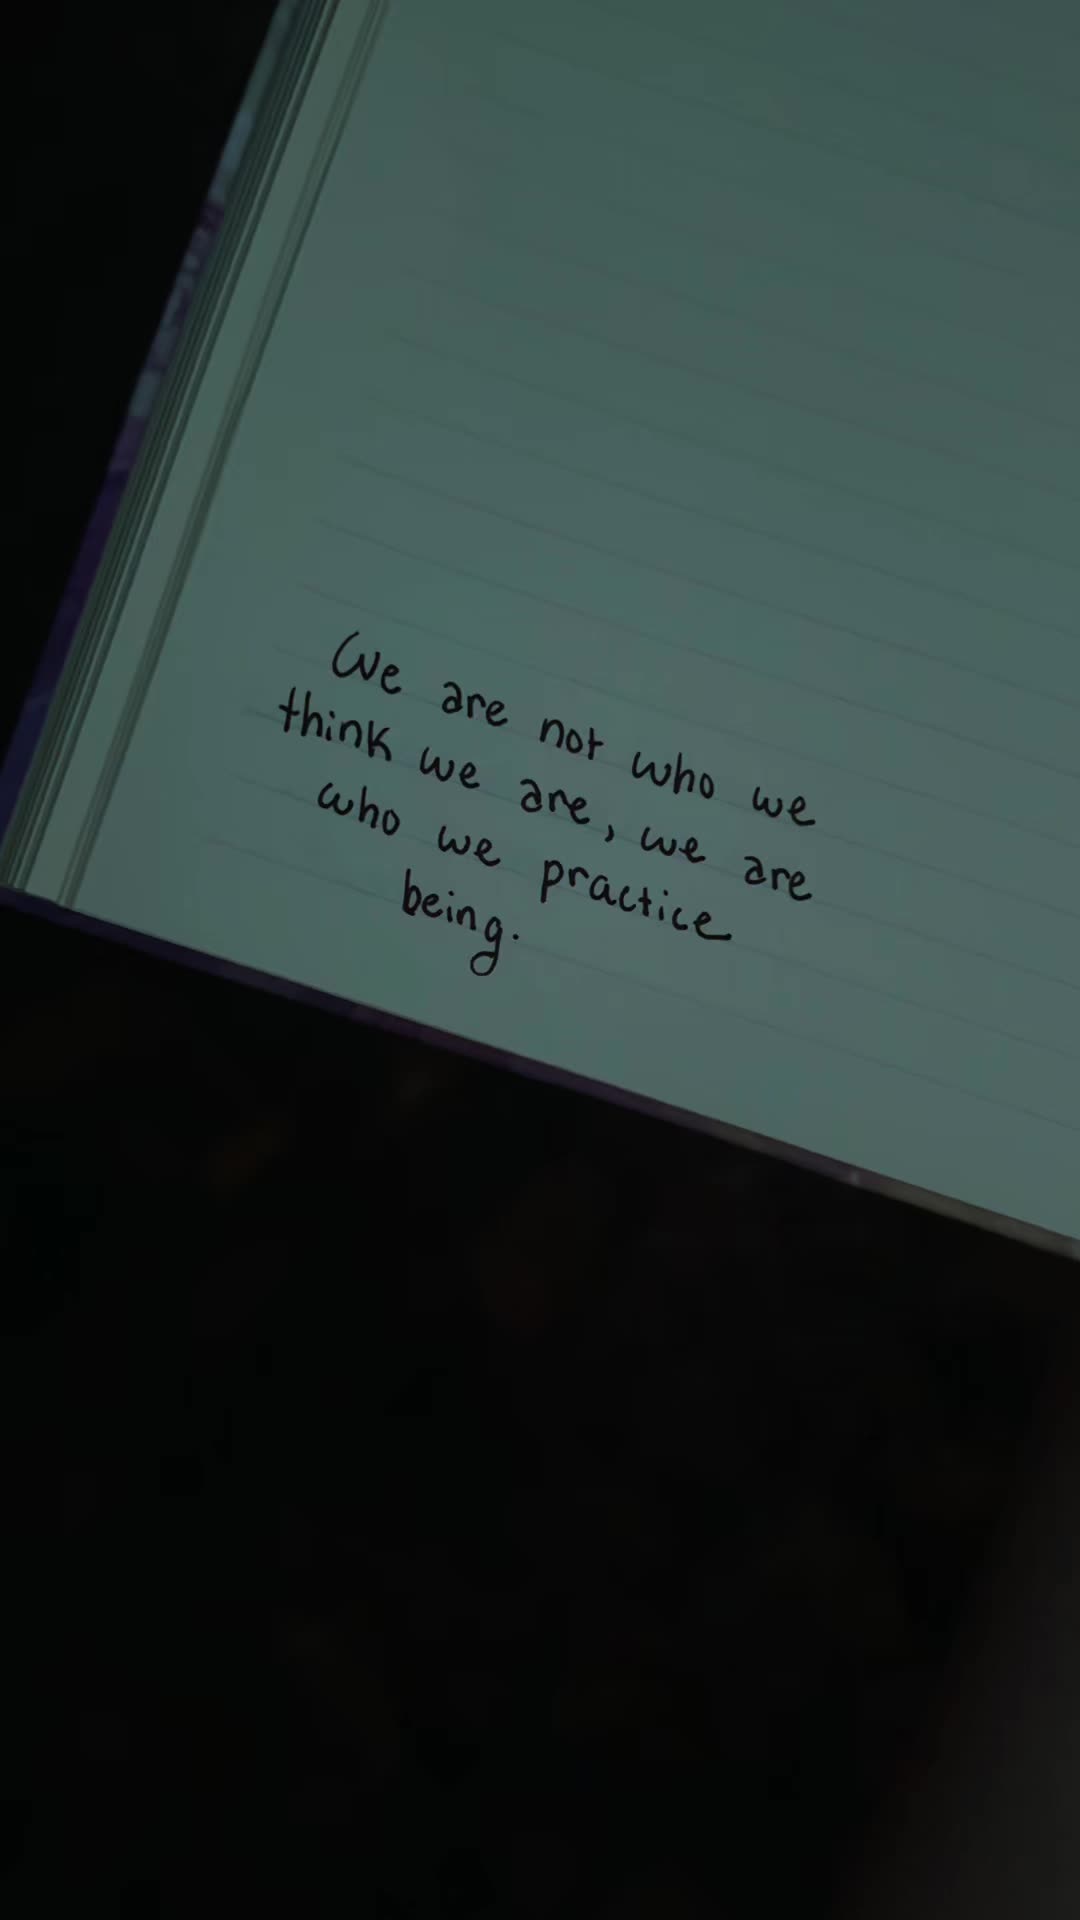 We are not who we
think we are, we are
who we practice
being.